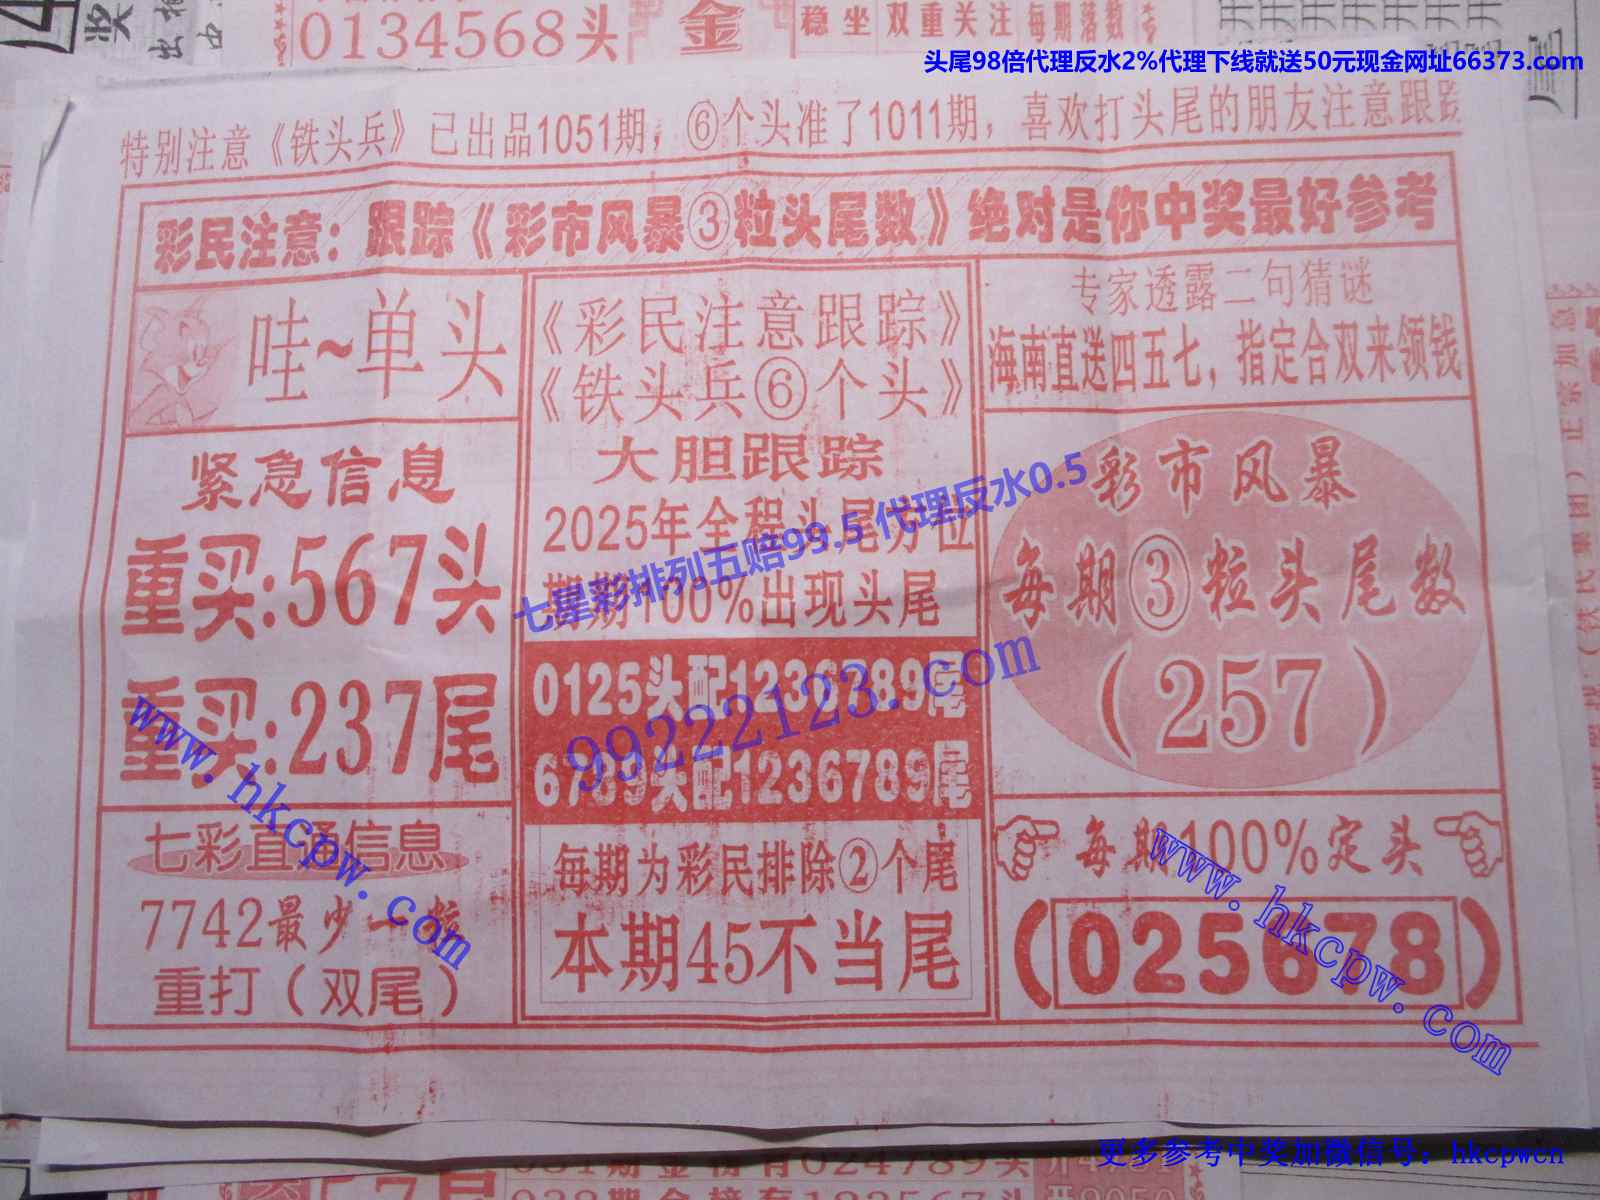 0134568头
金
稳坐双重关注
每期落数
头尾98倍代理反水2%代理下线就送50元现金网址66373.com
特别注意《铁头兵》已出品1051期，⑥个头准了1011期，喜欢打头尾的朋友注意跟踪
彩民注意：跟踪《彩市风暴③粒头尾数》绝对是你中奖最好参考
哇~单头
紧急信息
重买:567头
重买:237尾
七彩直通信息
7742最少一粒
重打（双尾）
《彩民注意跟踪》
《铁头兵⑥个头》
大胆跟踪
2025年全程头尾方位
期期100%出现头尾
0125头配1236789尾
6789头配1236789尾
每期为彩民排除②个尾
本期45不当尾
专家透露二句猜谜
海南直送四五七，指定合双来领钱
彩市风暴
每期③粒头尾数
（257）
每期100%定头
（025678）
七星彩排列五赔99.5 代理反水0.5
99222123.com
www.hkcpw.com
www.hkcpw.com
更多参考中奖加微信号：hkcpwcn